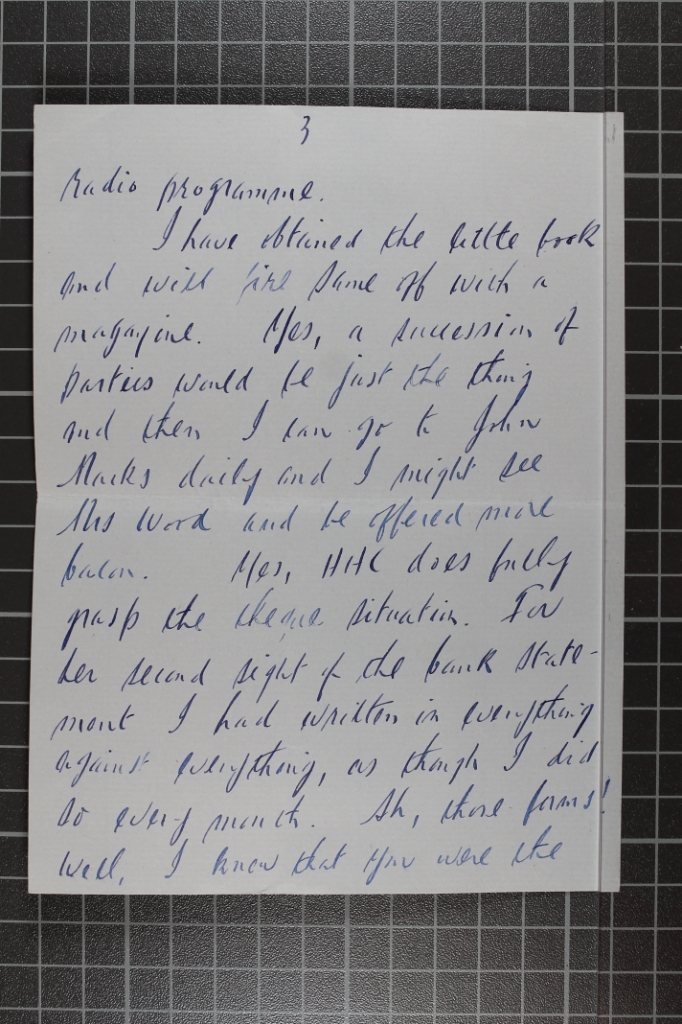 3
radio programme.
I have obtained the little book
and will fire same off with a
magazine. Yes, a succession of
parties would be just the thing
and then I can go to John
Marks daily and I might see
Mrs Word and be offered more
bacon. Yes, HHC does fully
grasp the cheque situation. For
her second sight of the bank state-
ment I had written in everything
against everything, as though I did
so every month. Ah, those forms!
Well, I knew that you were the